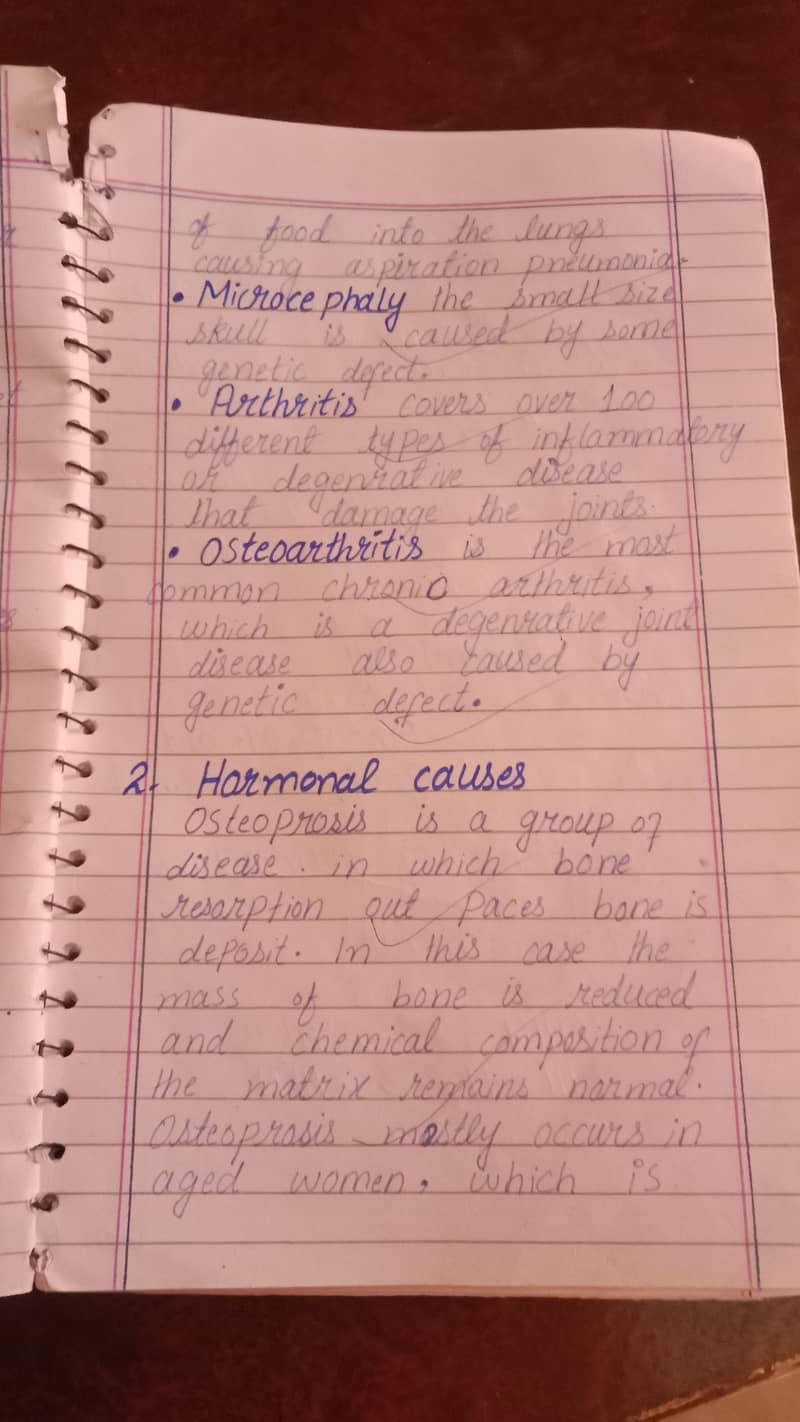 of food into the lungs
causing aspiration pneumonia.
• Microcephaly the small size
skull is caused by some
genetic defect.
• Arthritis covers over 100
different types of inflammatory
or degenrative disease
that damage the joints.
• Osteoarthritis is the most
common chronic arthritis,
which is a degenrative joint
disease also caused by
genetic defect.
2. Hormonal causes
Osteoprosis is a group of
disease. in which bone
resorption out paces bone is
deposit. In this case the
mass of bone is reduced
and chemical composition of
the matrix remains normal.
Osteoprosis mostly occurs in
aged women, which is